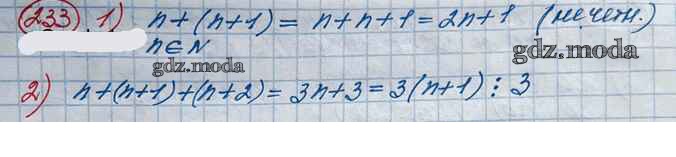 233 1) n+(n+1) = n+n+1 = 2n+1 (нечетн.)
n∈N
gdz.moda
gdz.moda
2) n+(n+1)+(n+2) = 3n+3 = 3(n+1) ⋮ 3